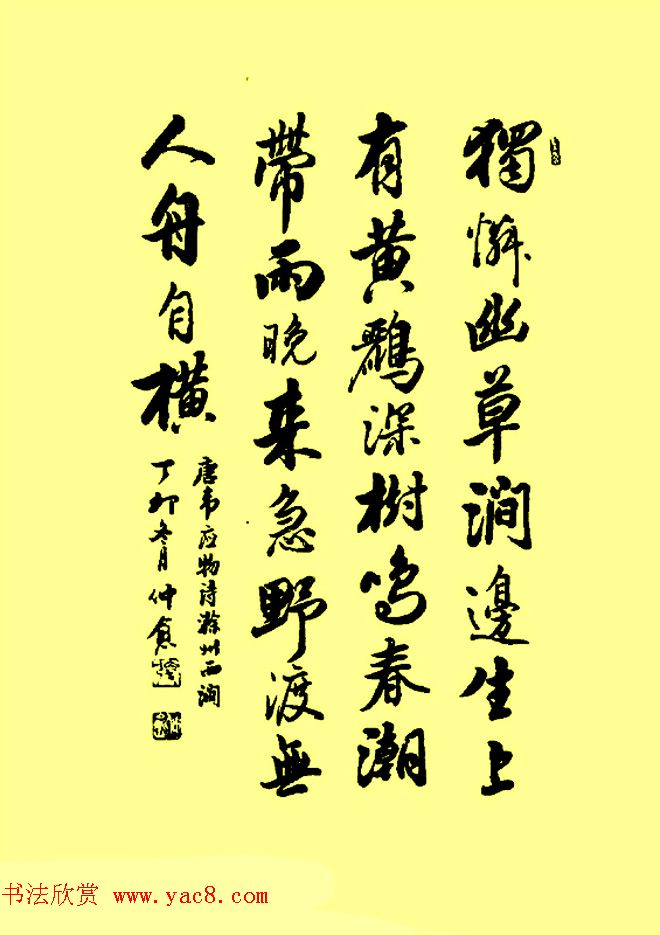 獨憐幽草澗邊生上
有黃鸝深樹鳴春潮
帶雨晚来急野渡無
人舟自橫
唐韦应物詩滁州西澗
丁卯冬月仲愈
书法欣赏 www.yac8.com